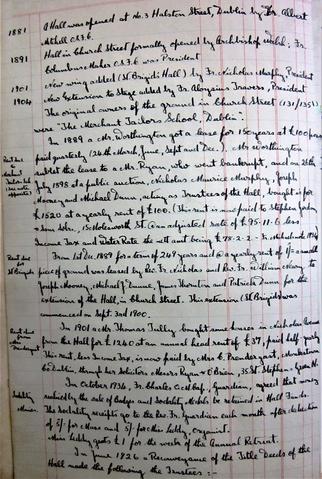 1881 A Hall was opened at No. 3 Halston Street, Dublin by Fr. Albert
Mitchell O.S.F.C.
1891 Hall in Church Street formally opened by Archbishop Walsh; Fr.
Columbus Maher O.S.F.C. was President
1901 New wing added (St Brigid's Hall) by Fr. Nicholas Murphy, President
1904 New Extension to Stage added by Fr. Aloysius Travers, President
The original owners of the ground in Church Street (131/135)
were "The Merchant Tailors School, Dublin".
In 1889 a Mr. Worthington got a lease for 150 years at £100 per ann
paid quarterly (24th March, June, Sept and Dec.). Mr. Worthington
sublet the lease to a Mr. Ryan, who went bankrupt, and on 28th
July 1898 at a public auction, Nicholas Maurice Murphy, Joseph
Mooney and Michael Dunn, acting as Trustees of the Hall, bought it for
£1520 at a yearly rent of £100. (This rent is now paid to Stephen
& Sons Solrs., Molesworth St. @ an adjusted rate of £95-11-6 less
Income Tax and Poor Rate the nett amt being £78-2-2
From 1st Dec. 1889 for a term of 249 years and @ a yearly rent of 1/= a small
piece of ground was leased by Rev. Fr. Nicholas and Rev. Fr. William to
Joseph Mooney, Michael J. Dunne, James Thornton and Patrick Dunn for the
extension of the Hall, in Church Street. This extension (St Brigid's) was
commenced on Sept. 3rd 1900.
In 1901 a Mr. Thomas Tully bought some houses in Nicholas Avenue
from the Hall for £1240 at an annual head rent of £37, paid half yearly
This rent, less Income Tax, is now paid by Mrs C. Prendergast,
Dublin, through her Solicitors Messrs Ryan & O'Brien, 35 St. Stephen's Green N.
In October 1936, Fr. Charles O.M.Cap., Guardian, agreed that money
realised by the sale of Badges and Sodality Medals be retained in Hall Funds.
The Sodality receipts go to the Rev. Fr. Guardian each month after deduction
of 5/- for a Mass and 5/- for Miss Liddy, organist.
Miss Liddy gets £1 for the week of the Annual Retreat.
In June 1926 a Reconveyance of the Title Deeds of the
Hall made the following the Trustees :-